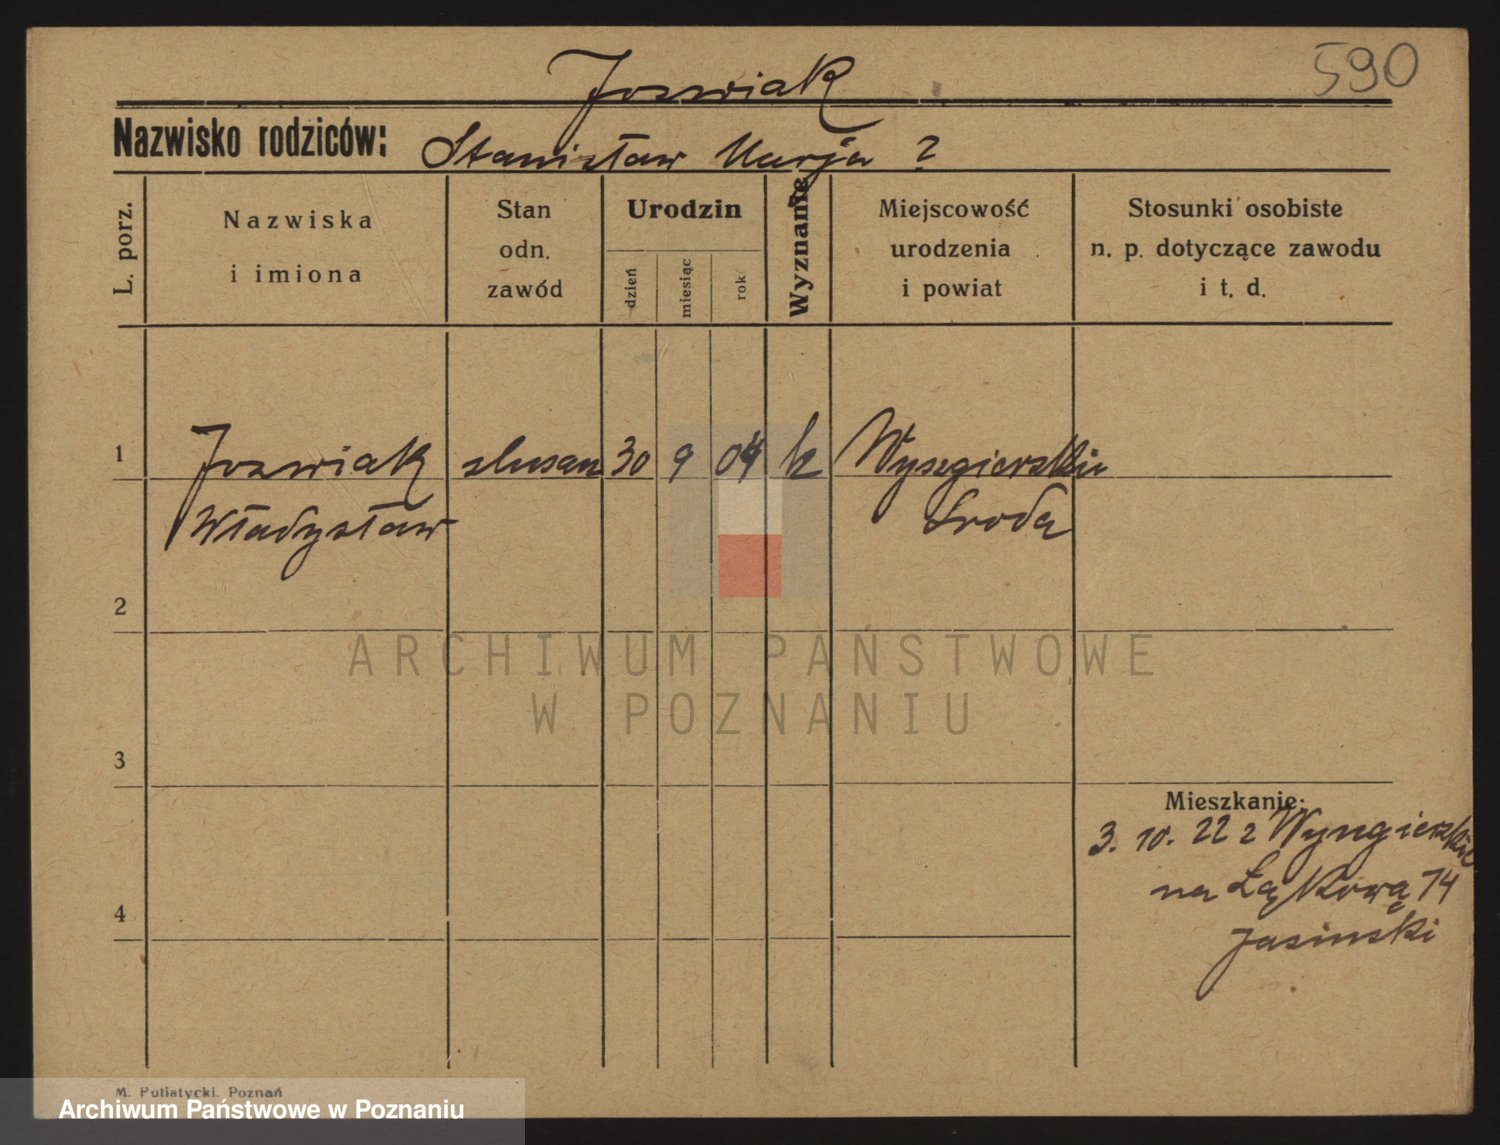 590
Jozwiak
Nazwisko rodziców: Stanisław Marja ?
L. porz.
Nazwiska
i imiona
Stan
odn.
zawód
Urodzin
dzień
miesiąc
rok
Wyznanie
Miejscowość
urodzenia
i powiat
Stosunki osobiste
n. p. dotyczące zawodu
i t. d.
1 Jozwiak slusarz 30 9 04 k
Władysław Sroda
2
ARCHIWUM PAŃSTWOWE
W POZNANIU
3
Mieszkanie:
3. 10. 22 z
na Łąkową 14
Jasinski
4
M. Putiatycki. Poznań
Archiwum Państwowe w Poznaniu